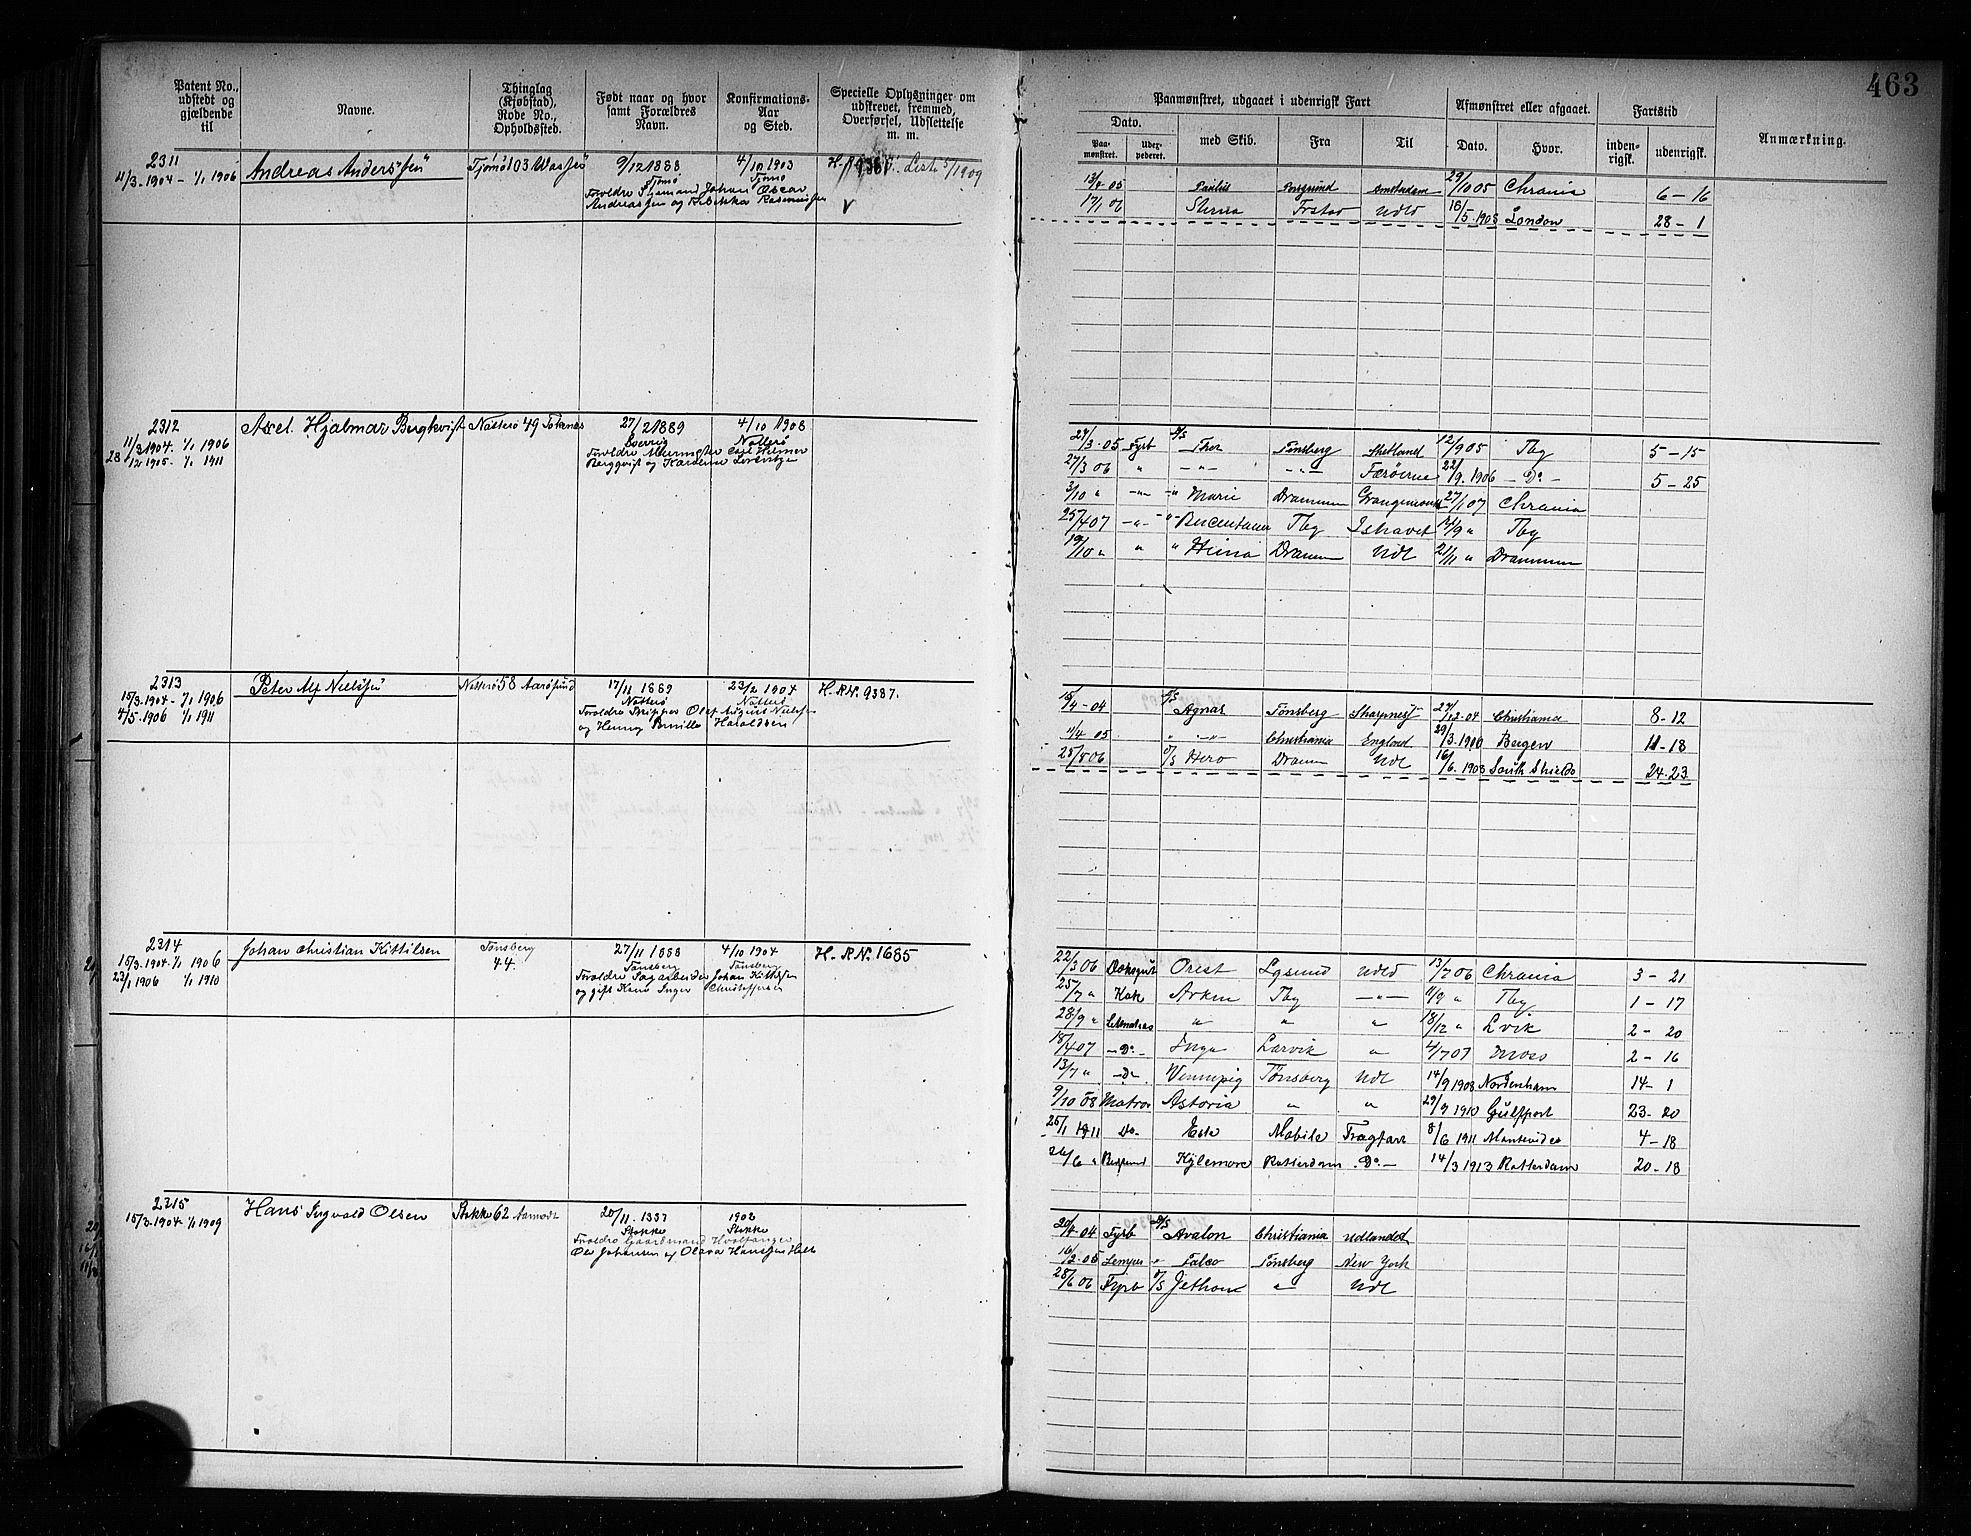 463
Patent No., udstedt og gjældende til
Navne.
Thinglag (Kjøbstad), Rode No., Opholdssted.
Født naar og hvor samt Forældres Navn.
Konfirmations- Aar og Sted.
Specielle Oplysninger om udskrevet, fremmed, Overførsel, Udslettelse m. m.
Paamønstret, udgaaet i udenrigsk Fart
Dato.
Paa- mønstret.
med Skib.
Fra
Til
Afmønstret eller afgaaet.
Dato.
Hvor.
Fartstid
inden- rigsk.
udenrigsk.
Anmærkning.
2311
11/3-1904 - 1/1 1906
Andreas Anderssen
Tjømø 103
9/12 1888
Tjømø
4/10 1903
Tjømø
Forældre Johan Oscar
Andreassen og Rebekka Rasmussen
5/1909
13/4 05 Porsgrund Amsterdam 29/10 05 Chrania 6 - 16
17/1 06 Sterna Frstad Udld 16/5 1908 London 28 - 1
2312
11/3 1904. 1/1 1906
28/12 1905. 1/1 1911
Axel Hjalmar Bergkvist
Nøtterø 49
27/2 1889
Sverrig
4/10 1903
Nøtterø
Forældre
Bergqvist og
27/3-05 Fyrb Thor Tønsberg Shetland 12/9 05 Tbg 5 - 15
27/3 06 " - " - - " - Færøerne 22/9. 1906 - Do - 5 - 25
3/10 " - " - Marie Drammen 27/1 07 Chrania
25/4 07 - " - Tbg Ishavet 14/9 " Tbg
19/10 " " " Heina Drammen Udl 21/11 " Drammen
2313
15/3-1904 - 1/1 1906
4/5. 1906 1/1 1911
Peter Alf Nielsen
Nøtterø 58 Aarøsund
17/11 1889
Nøtterø
23/2 1904
Nøtterø
H-RN. 9387.
Forældre Skipper Olaf August Nielsen
og Henny Pernille Haraldsen
15/4-04 Agnar Tønsberg Sharpness 27/12-04 Christiania 8-12
11/4 05 " - " - Christiania England 29/3.1906 Bergen 11-18
25/5 06 Hero Dramm Udl 16/6. 1908 South Shields 24-23
2314
15/3-1904- 1/1 1906
23/1 1906 1/1 1910
Johan Christian Kittilsen
Tønsberg
44.
27/11 1888
Tønsberg
4/10 1904
Tønsberg
H-RN. 1685
Forældre Sagarbeider Johan Kittilsen
og gift Kone Inger Christoffersen
22/3 06 Dæksgut Orest Udld 13/7 06 Chrania 3 - 21
25/7 " Kok Arken Tbg - " - 11/9 " Tbg 1 - 17
28/9 " Letmatros " " " 18/12 " Lvik 2 - 20
18/4 07 - Do - Inga Larvik " 4/7 07 Moss 2 - 16
13/7 " - Do - Winnipeg Tønsberg Udl 14/9 1908 Nordenham 14- 1
9/10 08 Matros Astoria " " 29/9 1910 Gulfport 23- 20
25/1 1911 Do- Mobile Fragtfart 8/6 1911 Montevideo 4 - 18
26/6 " Kylemore Rotterdam Do- 14/3 1913 Rotterdam 20 - 18
2315
15/3-1904- 1/1 1909
Hans Ingvald Olsen
Stokke 62
20/11. 1887
Stokke
1902
Stokke
Forældre Gaardmand Hvalfanger
Ole Johansen og Olava Hanssen
20/4 04 Fyrb Avalon Christiania udlandet
16/2-05 Lemper " Falco Tønsberg New York
28/6 06 Fyrb Udl